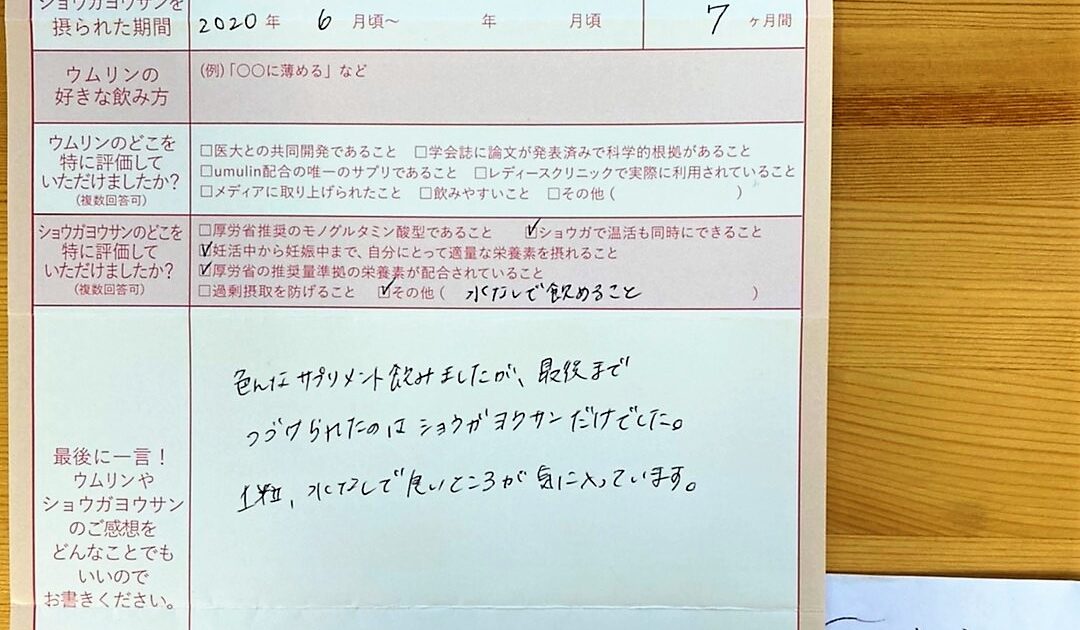 ショウガヨウサンを
摂られた期間
2020年 6 月頃〜 年 月頃
7 ヶ月間
ウムリンの
好きな飲み方
(例)「〇〇に薄める」など
ウムリンのどこを
特に評価して
いただけましたか?
(複数回答可)
□医大との共同開発であること □学会誌に論文が発表済みで科学的根拠があること
□umulin配合の唯一のサプリであること □レディースクリニックで実際に利用されていること
□メディアに取り上げられたこと □飲みやすいこと □その他( )
ショウガヨウサンのどこを
特に評価して
いただけましたか?
(複数回答可)
□厚労省推奨のモノグルタミン酸型であること ☑ショウガで温活も同時にできること
☑妊活中から妊娠中まで、自分にとって適量な栄養素を摂れること
☑厚労省の推奨量準拠の栄養素が配合されていること
□過剰摂取を防げること ☑その他( 水なしで飲めること )
最後に一言!
ウムリンや
ショウガヨウサン
のご感想を
どんなことでも
いいので
お書きください。
色んなサプリメント飲みましたが、最後まで
つづけられたのはショウガヨウサンだけでした。
1粒、水なしで良いところが気に入っています。